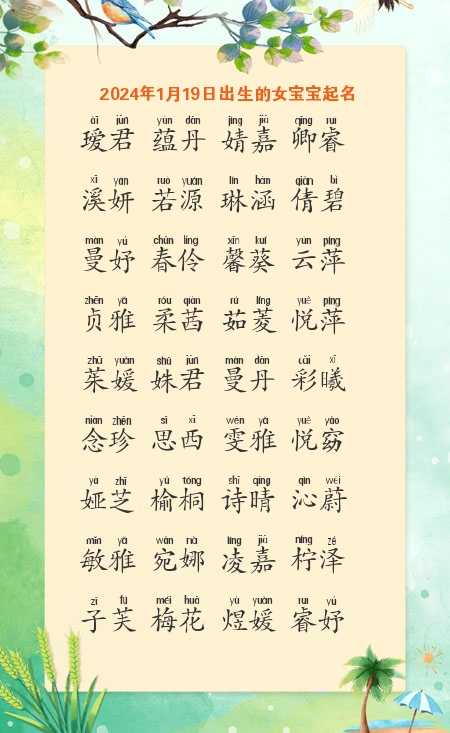 2024年1月19日出生的女宝宝起名
ài jūn yùn dān jīng jiā qīng ruì
瑷君 蕴丹 婧嘉 卿睿
xī yán ruò yuán lín hán qiàn bì
溪妍 若源 琳涵 倩碧
màn yú chūn líng xīn kuí yún píng
曼妤 春伶 馨葵 云萍
zhēn yǎ róu qiàn rú líng yuè píng
贞雅 柔茜 茹菱 悦萍
zhū yuán shū jūn màn dān cǎi xī
茱媛 姝君 曼丹 彩曦
niàn zhēn sī xī wén yǎ yuè yǎo
念珍 思西 雯雅 悦窈
yà zhī yú tóng shī qíng qìn wèi
娅芝 榆桐 诗晴 沁蔚
mǐn yǎ wǎn nà líng jiā níng zé
敏雅 宛娜 凌嘉 柠泽
zǐ fú méi huā yù yuán ruì yú
子芙 梅花 煜媛 睿妤